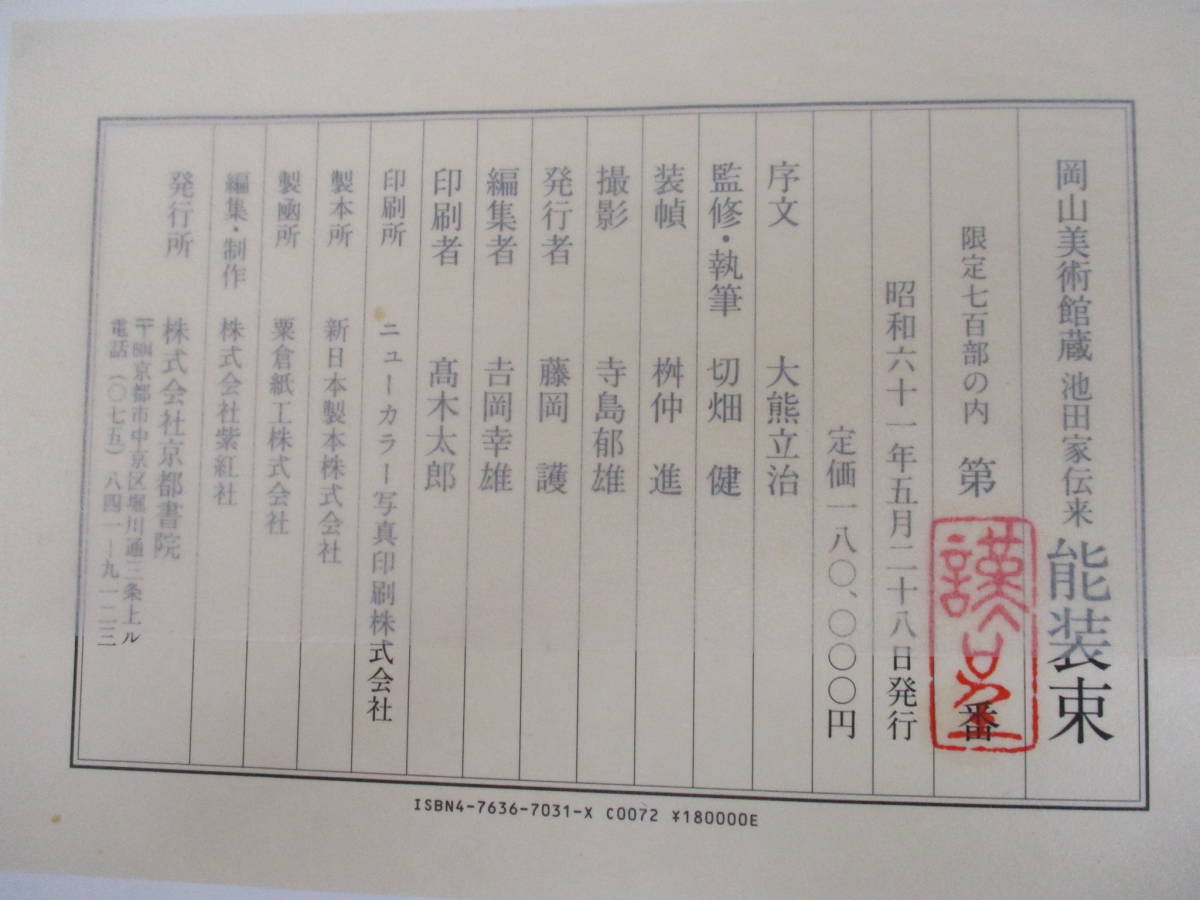 岡山美術館蔵 池田家伝来 能装束
限定七百部の内 第 番
謹呈
昭和六十一年五月二十八日発行
定価一八〇、〇〇〇円
序文 大熊立治
監修・執筆 切畑 健
装幀 桝仲 進
撮影 寺島郁雄
発行者 藤岡 護
編集者 吉岡幸雄
印刷者 髙木太郎
印刷所 ニューカラー写真印刷株式会社
製本所 新日本製本株式会社
製凾所 粟倉紙工株式会社
編集・制作 株式会社紫紅社
発行所 株式会社京都書院
〒604京都市中京区堀川通三条上ル
電話(〇七五)八四一―九一二三
ISBN4-7636-7031-X C0072 ¥180000E